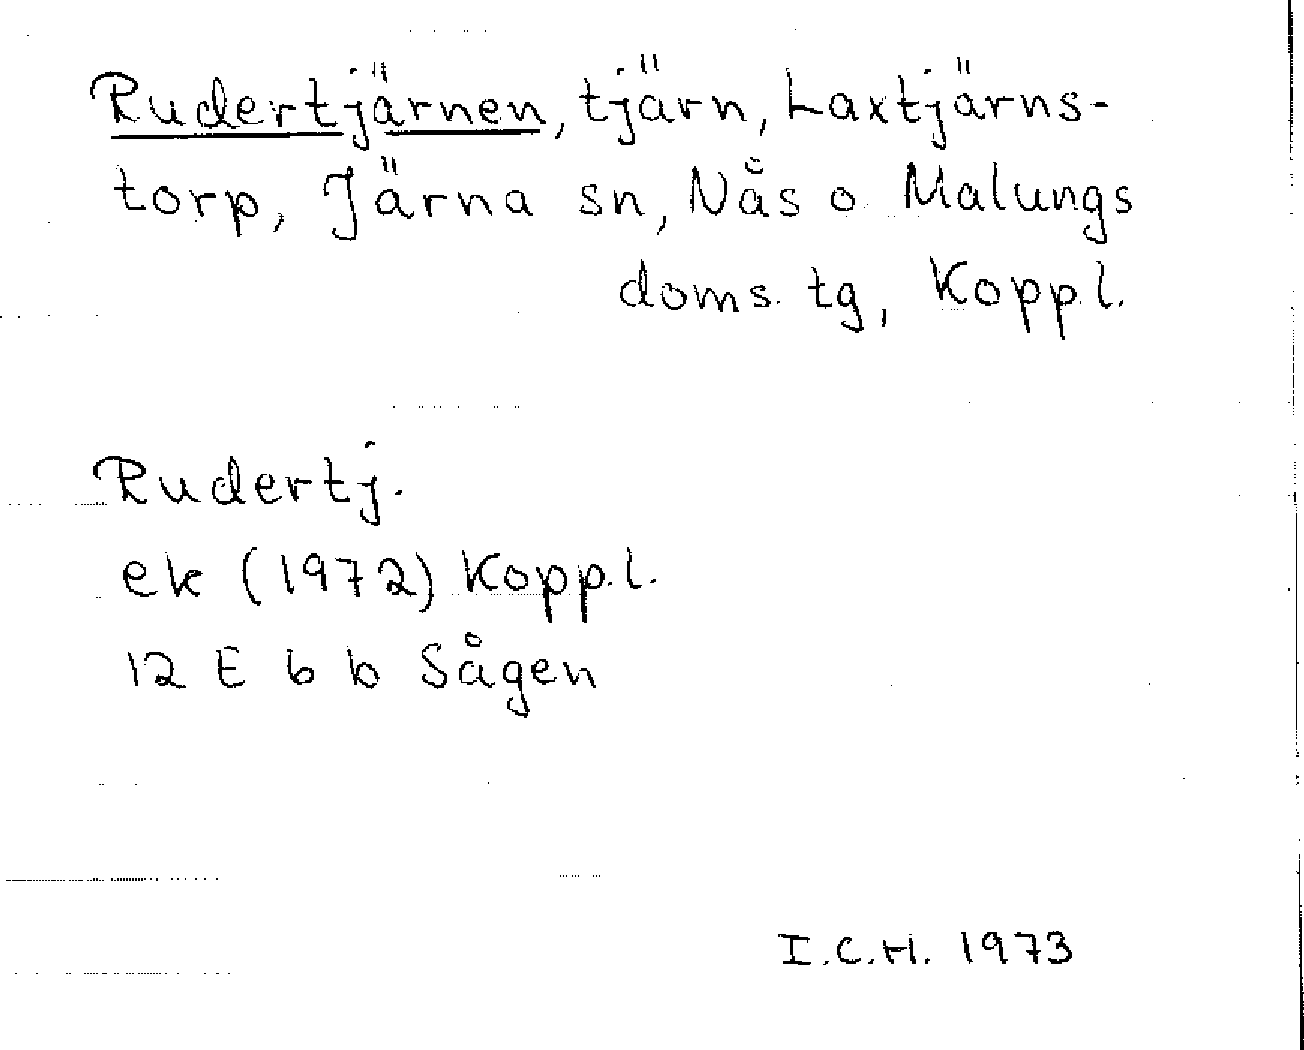 Rudertjärnen, tjärn, Laxtjärns-
torp, Järna sn, Nås o Malungs
doms. tg, Koppl.
Rudertj.
ek (1972) Kopp.l.
12 E 6 b Sågen
I.C.H. 1973